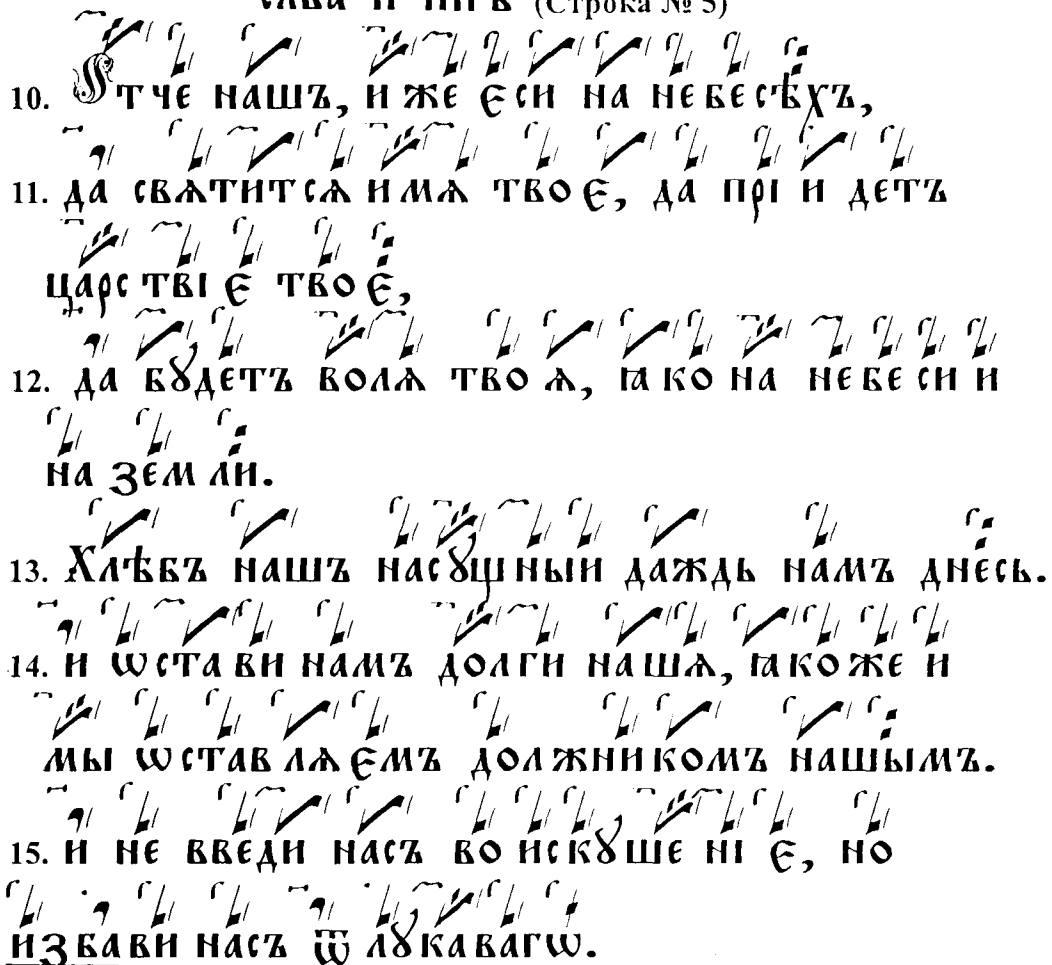 (Строка № 5)
10. Ѻтче нашъ, иже є си на небесѣхъ,
11. да свѧтитсѧ имѧ твоє, да прі и детъ
царствіє твоє,
12. да бꙋдетъ волѧ твоѧ, ꙗко на небеси и
на земли.
13. Хлѣбъ нашъ насꙋщный даждь намъ днесь.
14. и ѡстави намъ долги нашѧ, ꙗкоже и
мы ѡставлѧємъ должникомъ нашымъ.
15. и не введи насъ во искꙋшеніє, но
избави насъ ѿ лꙋкавагѡ.